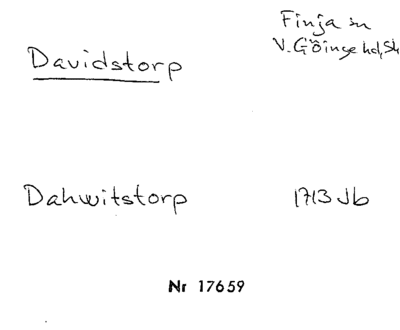 Finja sn
Davidstorp V. Göinge hd, Sk
Dahwitstorp 1713 Jb
Nr 17659